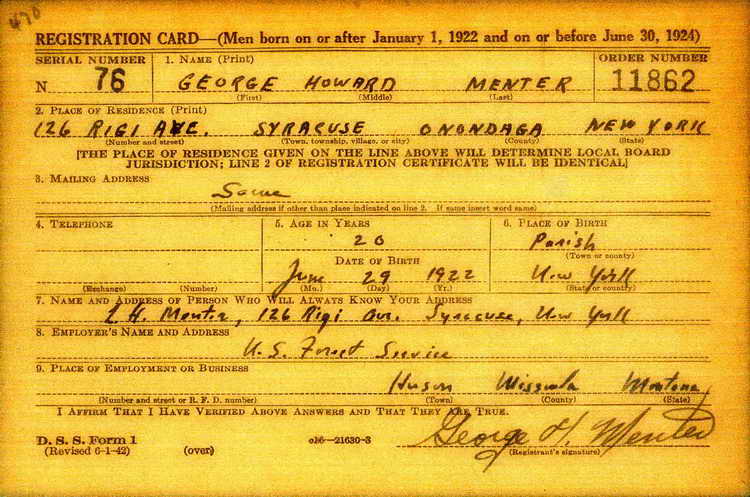 470
REGISTRATION CARD—(Men born on or after January 1, 1922 and on or before June 30, 1924)
SERIAL NUMBER 1. NAME (Print) ORDER NUMBER
N 76 GEORGE HOWARD MENTER 11862
(First) (Middle) (Last)
2. PLACE OF RESIDENCE (Print)
126 RIGI AVE. SYRACUSE ONONDAGA NEW YORK
(Number and street) (Town, township, village, or city) (County) (State)
[THE PLACE OF RESIDENCE GIVEN ON THE LINE ABOVE WILL DETERMINE LOCAL BOARD
JURISDICTION; LINE 2 OF REGISTRATION CERTIFICATE WILL BE IDENTICAL]
3. MAILING ADDRESS
Same
(Mailing address if other than place indicated on line 2. If same insert word same)
4. TELEPHONE 5. AGE IN YEARS 6. PLACE OF BIRTH
20 Parish
(Town or county)
DATE OF BIRTH
June 29 1922 New York
(Exchange) (Number) (Mo.) (Day) (Yr.) (State or country)
7. NAME AND ADDRESS OF PERSON WHO WILL ALWAYS KNOW YOUR ADDRESS
L.H. Menter, 126 Rigi Ave. Syracuse, New York
8. EMPLOYER'S NAME AND ADDRESS
U.S. Forest Service
9. PLACE OF EMPLOYMENT OR BUSINESS
Huson Missoula Montana
(Number and street or R. F. D. number) (Town) (County) (State)
I AFFIRM THAT I HAVE VERIFIED ABOVE ANSWERS AND THAT THEY ARE TRUE.
D. S. S. Form 1 George H. Menter
(Revised 6-1-42) (over) 16—21630-3 (Registrant's signature)